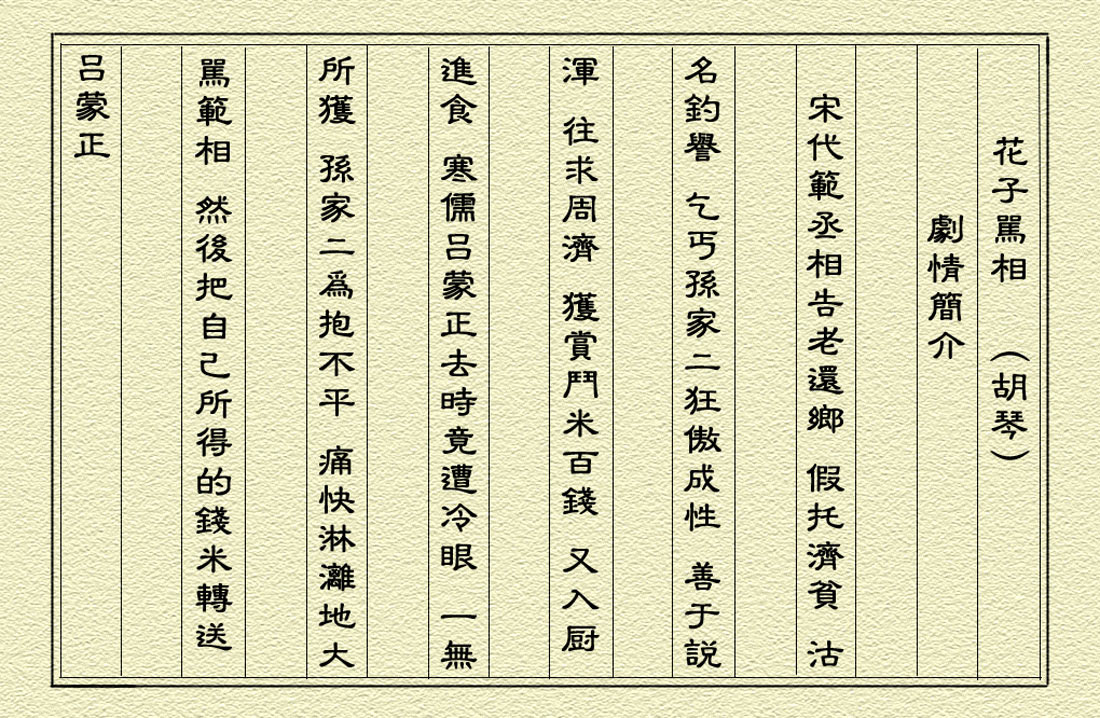 花子駡相 （胡琴）
劇情簡介
宋代範丞相告老還鄉 假托濟貧 沽
名釣譽 乞丐孫家二狂傲成性 善于説
渾 往求周濟 獲賞鬥米百錢 又入厨
進食 寒儒吕蒙正去時竟遭冷眼 一無
所獲 孫家二爲抱不平 痛快淋灕地大
駡範相 然後把自己所得的錢米轉送
吕蒙正